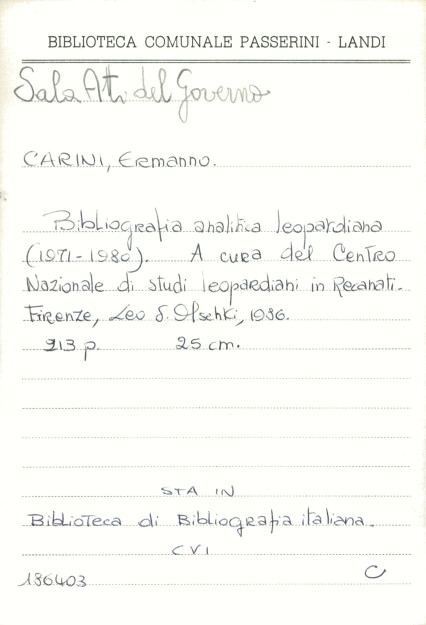 BIBLIOTECA COMUNALE PASSERINI - LANDI
Sala Atti del Governo
CARINI, Ermanno.
Bibliografia analitica leopardiana
(1971-1980). A cura del Centro
Nazionale di studi leopardiani in Recanati.
Firenze, Leo S. Olschki, 1986.
213 p. 25 cm.
STA IN
Biblioteca di Bibliografia italiana.
CVI
186403 C